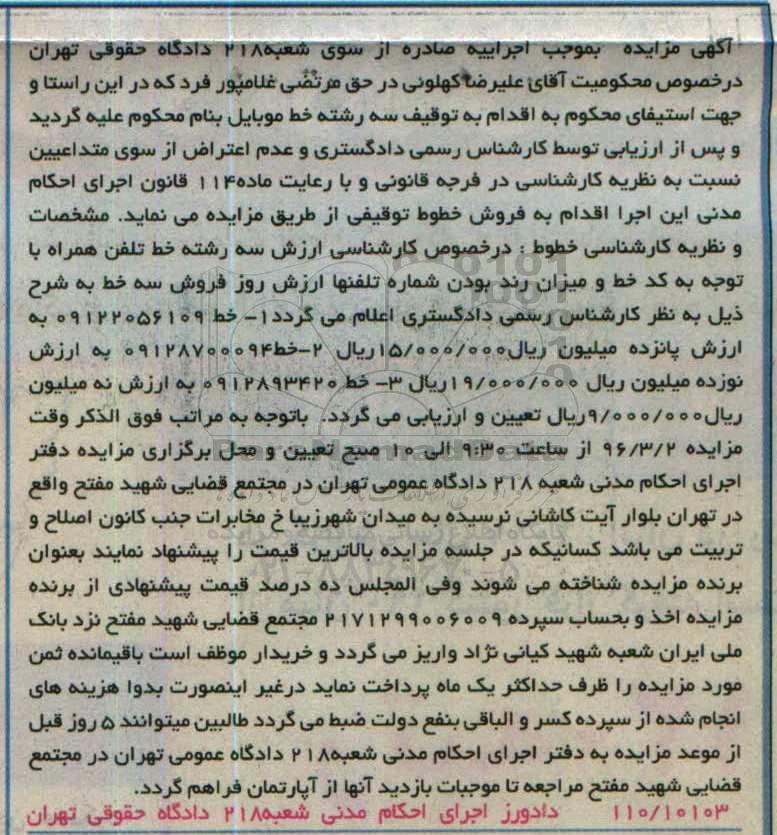 آگهی مزایده بموجب اجراییه صادره از سوی شعبه۲۱۸ دادگاه حقوقی تهران
درخصوص محکومیت آقای علیرضا کهلونی در حق مرتضی غلامپور فرد که در این راستا و
جهت استیفای محکوم به اقدام به توقیف سه رشته خط موبایل بنام محکوم علیه گردید
و پس از ارزیابی توسط کارشناس رسمی دادگستری و عدم اعتراض از سوی متداعیین
نسبت به نظریه کارشناسی در فرجه قانونی و با رعایت ماده۱۱۴ قانون اجرای احکام
مدنی این اجرا اقدام به فروش خطوط توقیفی از طریق مزایده می نماید. مشخصات
و نظریه کارشناسی خطوط : درخصوص کارشناسی ارزش سه رشته خط تلفن همراه با
توجه به کد خط و میزان رند بودن شماره تلفنها ارزش روز فروش سه خط به شرح
ذیل به نظر کارشناس رسمی دادگستری اعلام می گردد۱- خط ۰۹۱۲۲۰۵۶۱۰۹ به
ارزش پانزده میلیون ریال۱۵/۰۰۰/۰۰۰ریال ۲-خط۰۹۱۲۸۷۰۰۰۹۴ به ارزش
نوزده میلیون ریال ۱۹/۰۰۰/۰۰۰ریال ۳- خط ۰۹۱۲۸۹۳۴۲۰ به ارزش نه میلیون
ریال۹/۰۰۰/۰۰۰ریال تعیین و ارزیابی می گردد. باتوجه به مراتب فوق الذکر وقت
مزایده ۹۶/۳/۲ از ساعت ۹:۳۰ الی ۱۰ صبح تعیین و محل برگزاری مزایده دفتر
اجرای احکام مدنی شعبه ۲۱۸ دادگاه عمومی تهران در مجتمع قضایی شهید مفتح واقع
در تهران بلوار آیت کاشانی نرسیده به میدان شهرزیبا خ مخابرات جنب کانون اصلاح و
تربیت می باشد کسانیکه در جلسه مزایده بالاترین قیمت را پیشنهاد نمایند بعنوان
برنده مزایده شناخته می شوند وفی المجلس ده درصد قیمت پیشنهادی از برنده
مزایده اخذ و بحساب سپرده ۲۱۷۱۲۹۹۰۰۶۰۰۹ مجتمع قضایی شهید مفتح نزد بانک
ملی ایران شعبه شهید کیانی نژاد واریز می گردد و خریدار موظف است باقیمانده ثمن
مورد مزایده را ظرف حداکثر یک ماه پرداخت نماید درغیر اینصورت بدوا هزینه های
انجام شده از سپرده کسر و الباقی بنفع دولت ضبط می گردد طالبین میتوانند ۵ روز قبل
از موعد مزایده به دفتر اجرای احکام مدنی شعبه۲۱۸ دادگاه عمومی تهران در مجتمع
قضایی شهید مفتح مراجعه تا موجبات بازدید آنها از آپارتمان فراهم گردد.
۱۱۰/۱۰۱۰۳ دادورز اجرای احکام مدنی شعبه۲۱۸ دادگاه حقوقی تهران